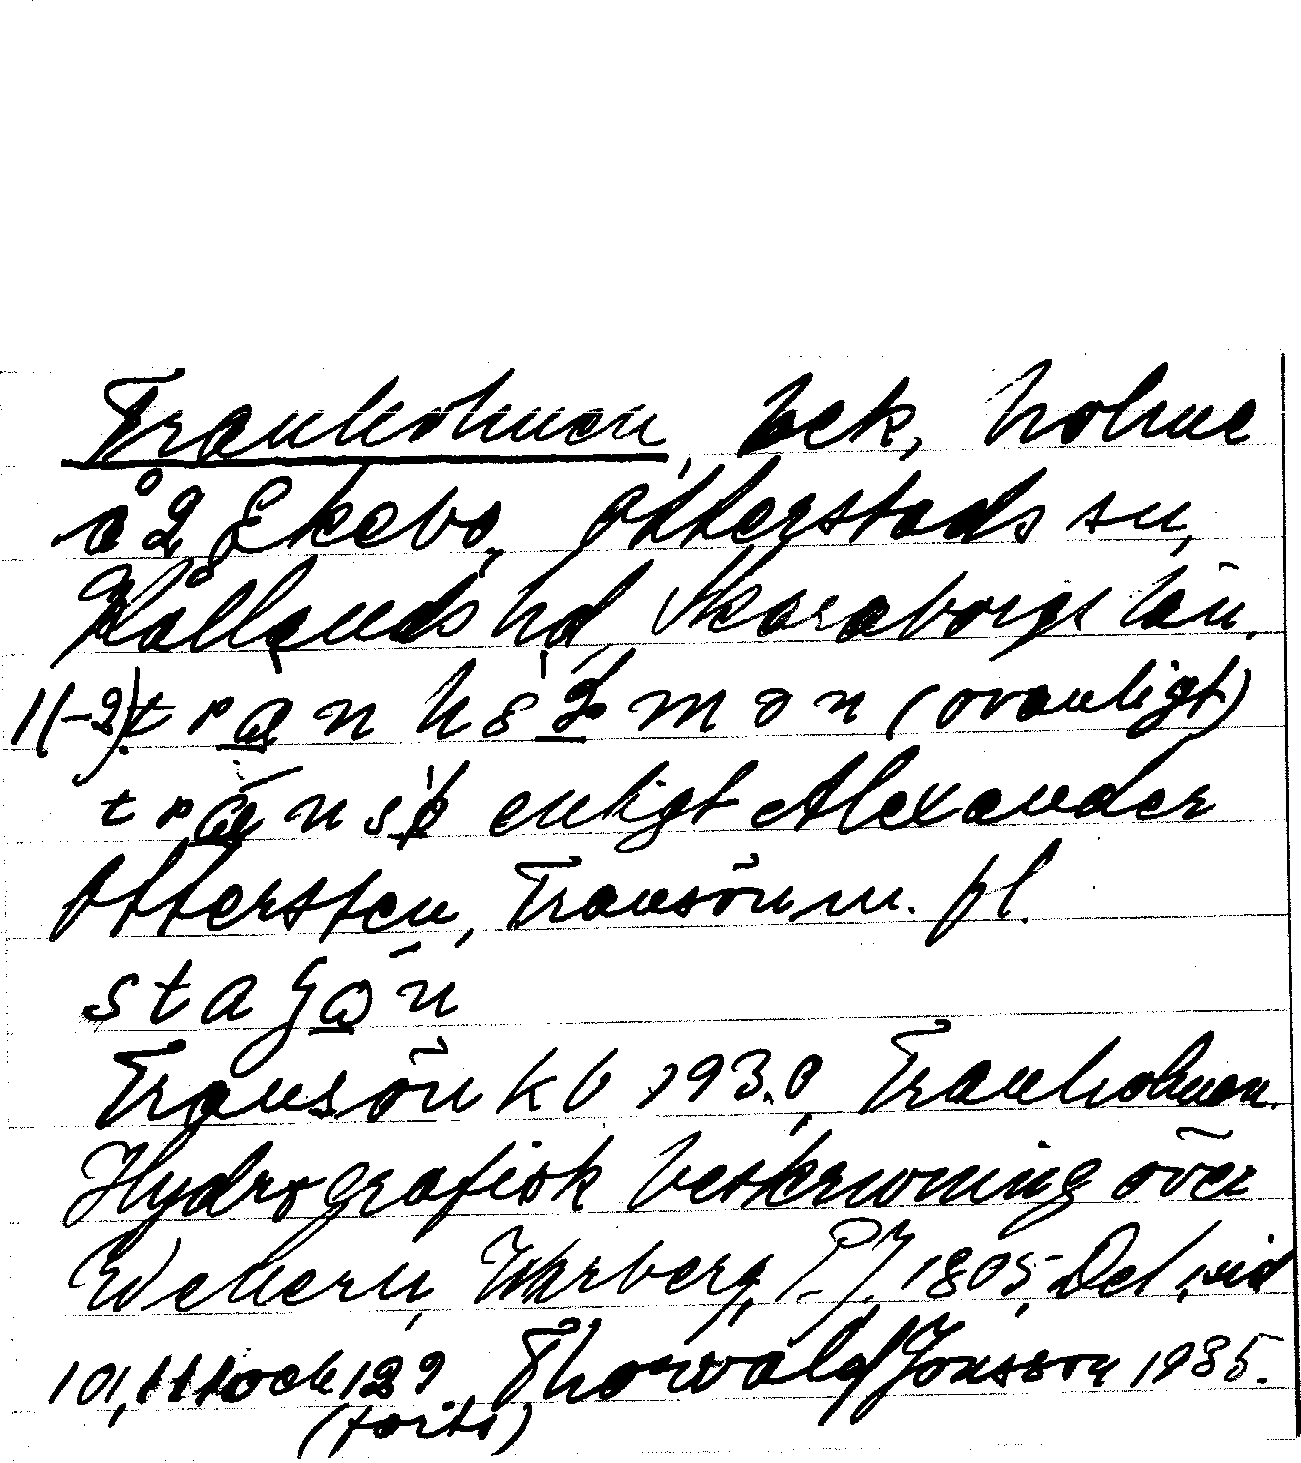 Tranholmen, bek. holme
å 2, Ekebo, Otterstads sn,
Kållands hd, Skaraborgs län.
1(-2). t r a n h ɛ l m ə n (ovanligt)
enligt Alexander
Ottersten, Transön m. fl.
s t a g ö n
Transön kb 1930, Tranholmen.
Hydrografisk beskrivning över
Wenern, P. J. 1805, Del, sid
101, och 129, Thorwald Jonsson 1985.
(forts)